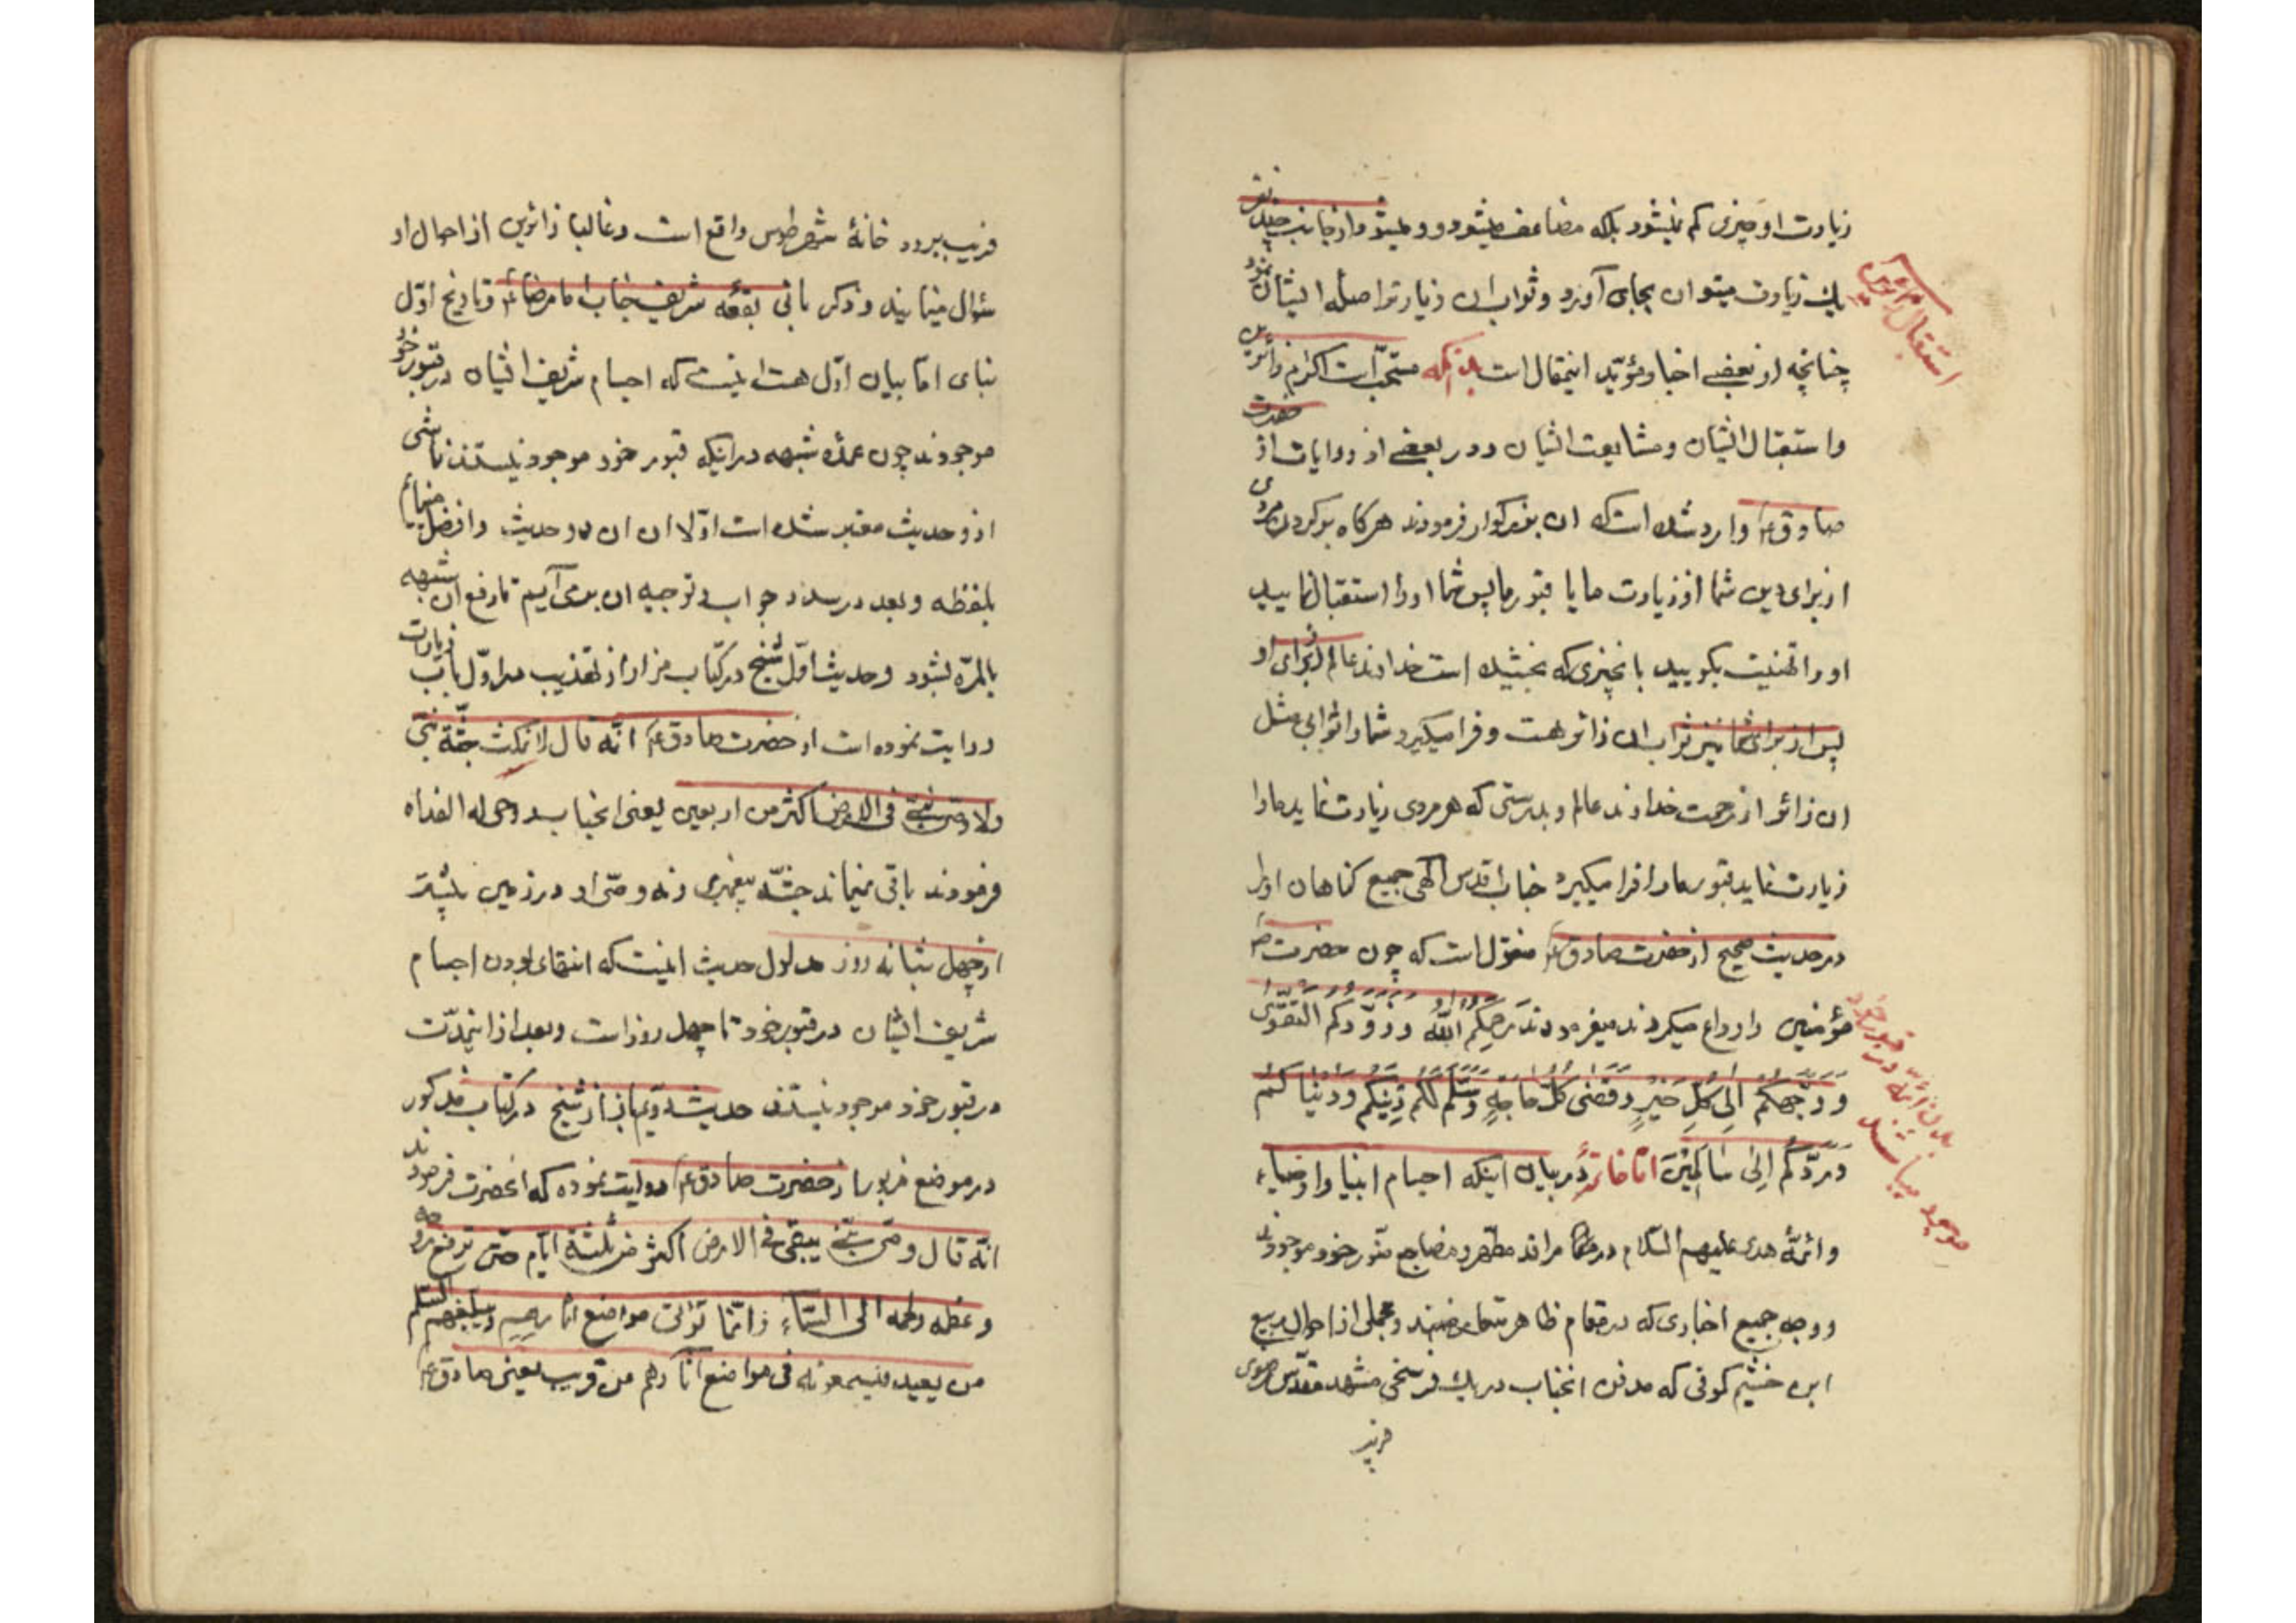 زیارت او چیزی کم نمیشود بلکه مضاعف میشود و میشود از جانب چند نفر
یک زیارت میتوان بجای آورد و ثواب ان زیارترا صله ایشان نمود
چنانچه از بعضی اخبار مؤید اینمقال است بدانکه مستحب است اکرام زائرین
و استقبال ایشان و مشایعت ایشان و در بعضی از روایات از حضرت
صادق ع وارد شده است که ان بزرکوار فرمودند هر کاه بر کردد مردی
از برای دین شما از زیارت ما یا قبور ما پس شما اورا استقبال نمایید
و اورا تهنیت بکویید بانچیزی که بخشیده است خداوند عالم از برای او
پس از برای شما نیز ثواب ان زائر هست و فرا میکیرد شما را ثوابی مثل
ان زائر از رحمت خداوند عالم و بدرستی که هر مردی زیارت نماید مارا
زیارت نماید قبور مارا فرا میکیرد جناب اقدس الهی جمیع کناهان اورا
در حدیث صحیح از حضرت صادق ع منقول است که چون حضرت
مؤمنین را وداع میکردند میفرمودند رَحِمَکُم اللّٰه وزوّدکم التقوی
و وجّهکم اِلی کلّ خیرٍ و قضی کلّ حاجةٍ و سلّم لکم دینکم و دنیا کم
و ردّکم اِلی سالمین امّا خاتمه در بیان اینکه اجسام انبیا و اوصیاء
و ائمّهٔ هدی علیهم السّلام در مراقد مطهر و مضاجع منوّر خود موجودند
و وجه جمیع اخباری که در مقام ظاهر و مجملی از احوال ربیع
ابن خثیم کوفی که مدفن انجناب در یک فرسخی مشهد مقدّس رضوی
استقبال زائرین
بدن ائمّه در قبور خود
موجود میباشند
قریب ببرود خانهٔ شهر طوس واقع است و غالبا زائرین از احوال او
سؤال مینمایند و ذکر بانی بقعه شریف جناب امام رضا ع و تاریخ اوّل
بنای امّا بیان اوّل هست اینست که اجسام شریف ایشان در قبور خود
موجودند چون عمدهٔ شبهه در اینکه قبور خود موجود نیستند ناشی
از دو حدیث معتبر شده است اوّلا ان ان دو حدیث را نقل مینمائیم
بلفظه و بعد در صدد جواب و توجیه ان بر می آییم تا رفع ان شبهه
بالمرّه بشود و حدیث اوّل شیخ در کتاب مزار از تهذیب در اوّل باب زیارت
روایت نموده است از حضرت صادق ع انّه قال لا تمکث جثّة نبیّ
ولا وصیّ نبیّ فی الارض اکثر من اربعین یعنی انجناب روحی له الفداه
فرمودند باقی نمیماند جثّه پیغمبری و نه وصیّ او در زمین بیشتر
از چهل شبانه روز مدلول حدیث اینست که انتهای بودن اجسام
شریف ایشان در قبور خود تا چهل روز است و بعد از اینمدّت
در قبور خود موجود نیستند حدیث دویم باز از شیخ در کتاب مذکور
در موضع مزبور از حضرت صادق ع روایت نموده که انحضرت فرمودند
انّه قال و وصیّ نبیّ یبقی فی الارض اکثر من ثلثة ایّام حتّی ترفع روحه
و عظمه و لحمه الی السّماء و انّما تؤتی مواضع اثارهم و یبلّغهم السّلم
من بعید و یسمعونه فی مواضع آثارهم من قریب یعنی صادق ع